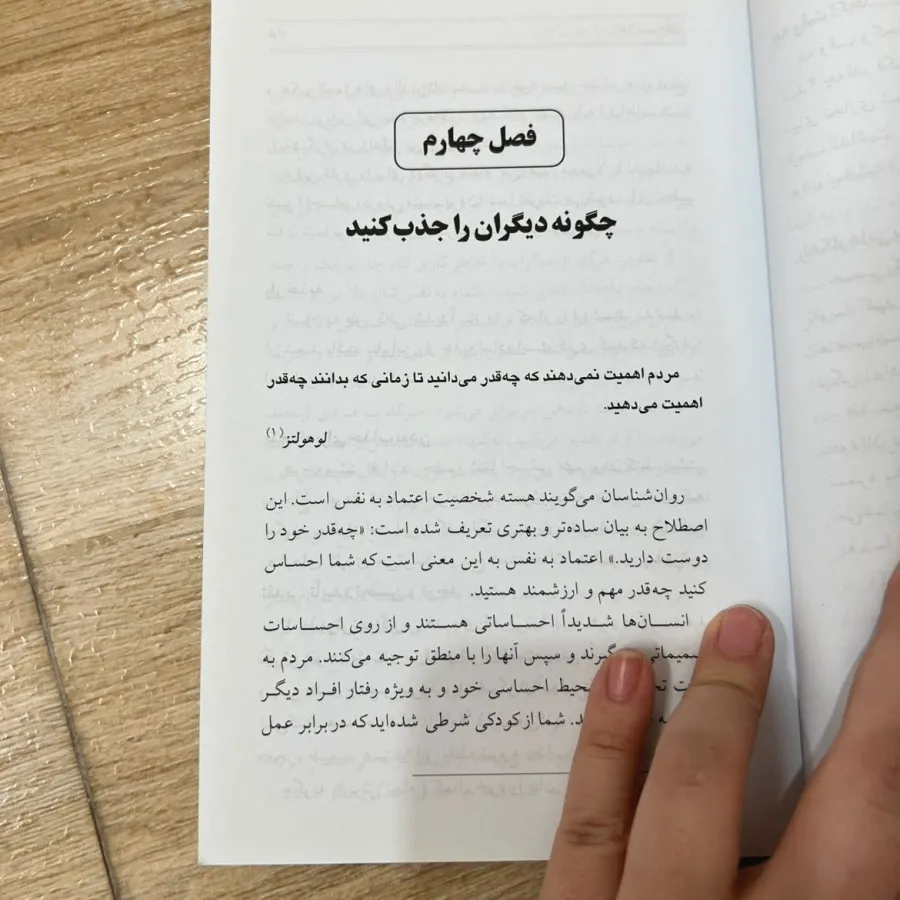 فصل چهارم
چگونه دیگران را جذب کنید
مردم اهمیت نمی‌دهند که چه‌قدر می‌دانید تا زمانی که بدانند چه‌قدر
اهمیت می‌دهید.
لوهولتز(۱)
روان‌شناسان می‌گویند هسته شخصیت اعتماد به نفس است. این
اصطلاح به بیان ساده‌تر و بهتری تعریف شده است: «چه‌قدر خود را
دوست دارید.» اعتماد به نفس به این معنی است که شما احساس
کنید چه‌قدر مهم و ارزشمند هستید.
انسان‌ها شدیداً احساساتی هستند و از روی احساسات
سپس آنها را با منطق توجیه می‌کنند. مردم به
احساسی خود و به ویژه رفتار افراد دیگر
شما از کودکی شرطی شده‌اید که در برابر عمل